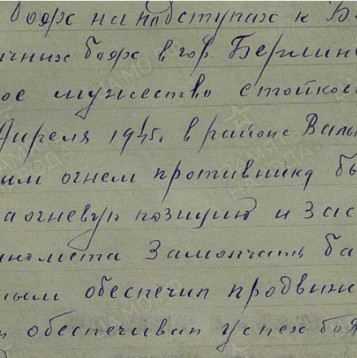 боях на подступах к Б
ичных боях в гор. Берлин
ое мужество стойкос
Апреля 1945г. в районе Валь
ым огнем противника бы
а огневую позицию и зас
иномета замолчать ба
ным обеспечил продвиж
обеспечивал успех боя